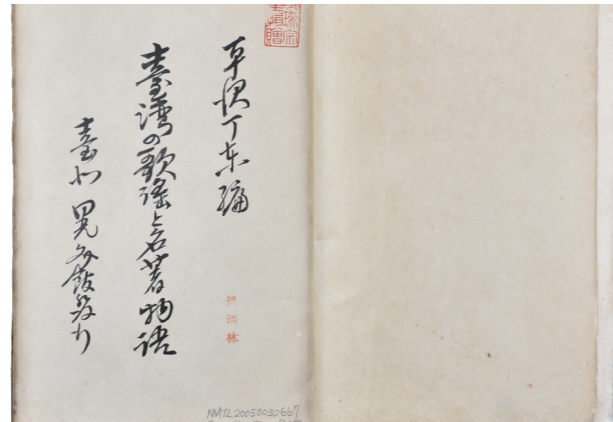 平沢丁東編
臺湾の歌謠と名著物語
臺北 晃文館發行
林
NMTL20050030667